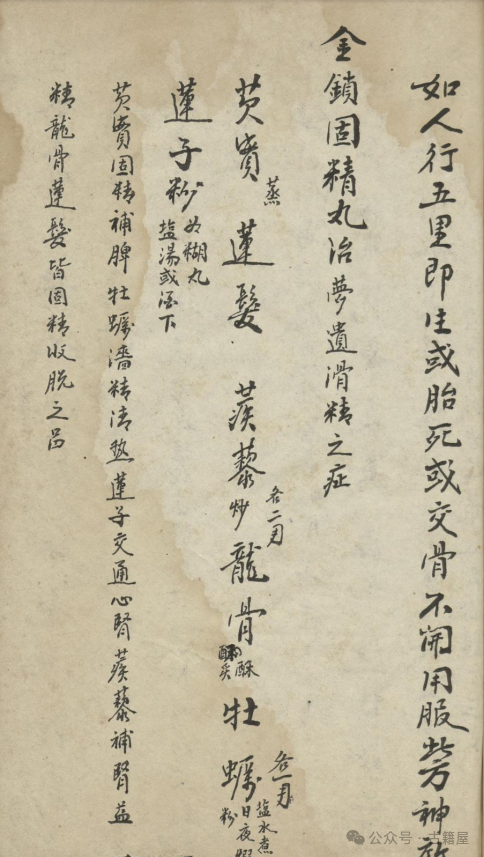 如人行五里即生或胎死或交骨不開用服芎神
金鎖固精丸治夢遺滑精之症
芡實蒸蓮鬚蒺藜炒各二両龍骨酥炙牡蠣各一両塩水煮日夜煅粉
蓮子粉为糊丸塩湯或酒下
芡實固精補脾牡蠣濇精清熱蓮子交通心腎蒺藜補腎益
精龍骨蓮鬚皆固精收脱之品
公众号·古籍屋